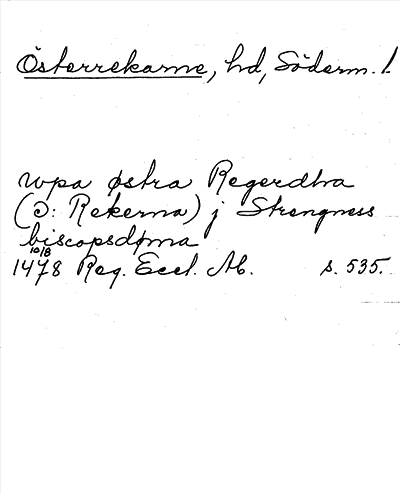 Österrekarne, hd, Söderm. l.
wpa østra Regerdhra
(ɔ: Rekerna) j Strengness
biscopsdøma
10/8
1478 Reg. Eccl. Ab. s. 535.